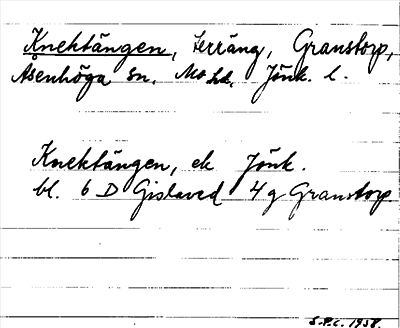 Knektängen, terräng, Granstorp,
Åsenhöga sn. Mo hd. Jönk. l.
Knektängen, ek Jönk.
bl. 6 D Gislaved 4 g Granstorp
S.P.C. 1938.